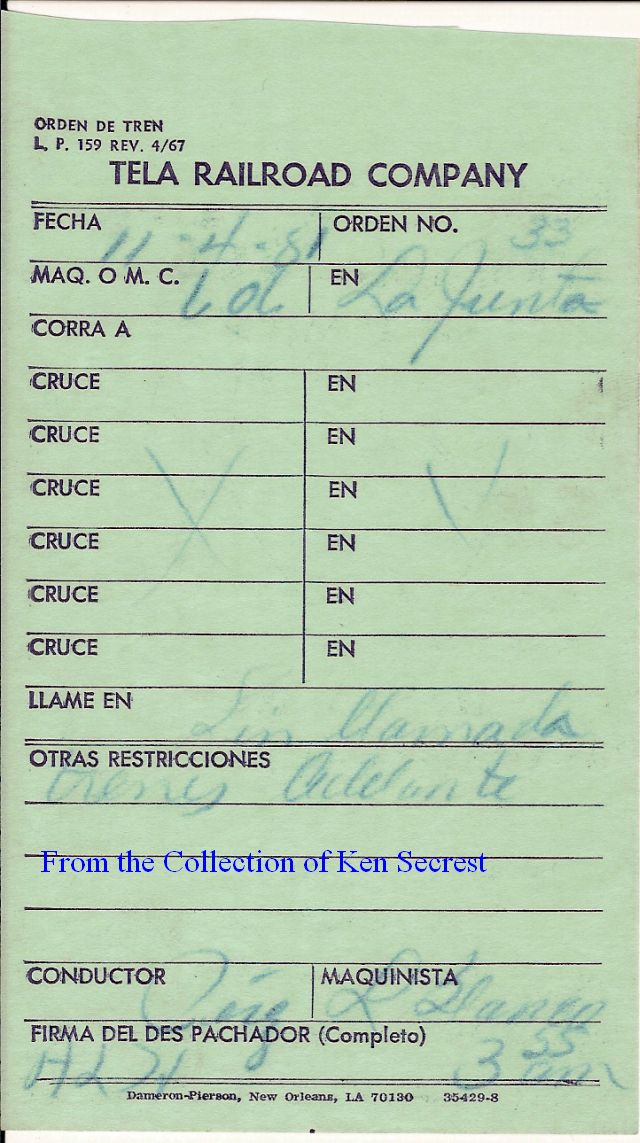 ORDEN DE TREN
L. P. 159 REV. 4/67
TELA RAILROAD COMPANY
FECHA 11-4-81 ORDEN NO. 33
MAQ. O M. C. EN La Junta
CORRA A
CRUCE EN
CRUCE EN
CRUCE EN
CRUCE EN
CRUCE EN
CRUCE EN
LLAME EN Sin llamada
OTRAS RESTRICCIONES
trenes adelante
From the Collection of Ken Secrest
CONDUCTOR MAQUINISTA
FIRMA DEL DES PACHADOR (Completo)
3 55 am
Dameron-Pierson, New Orleans, LA 70130 35429-8